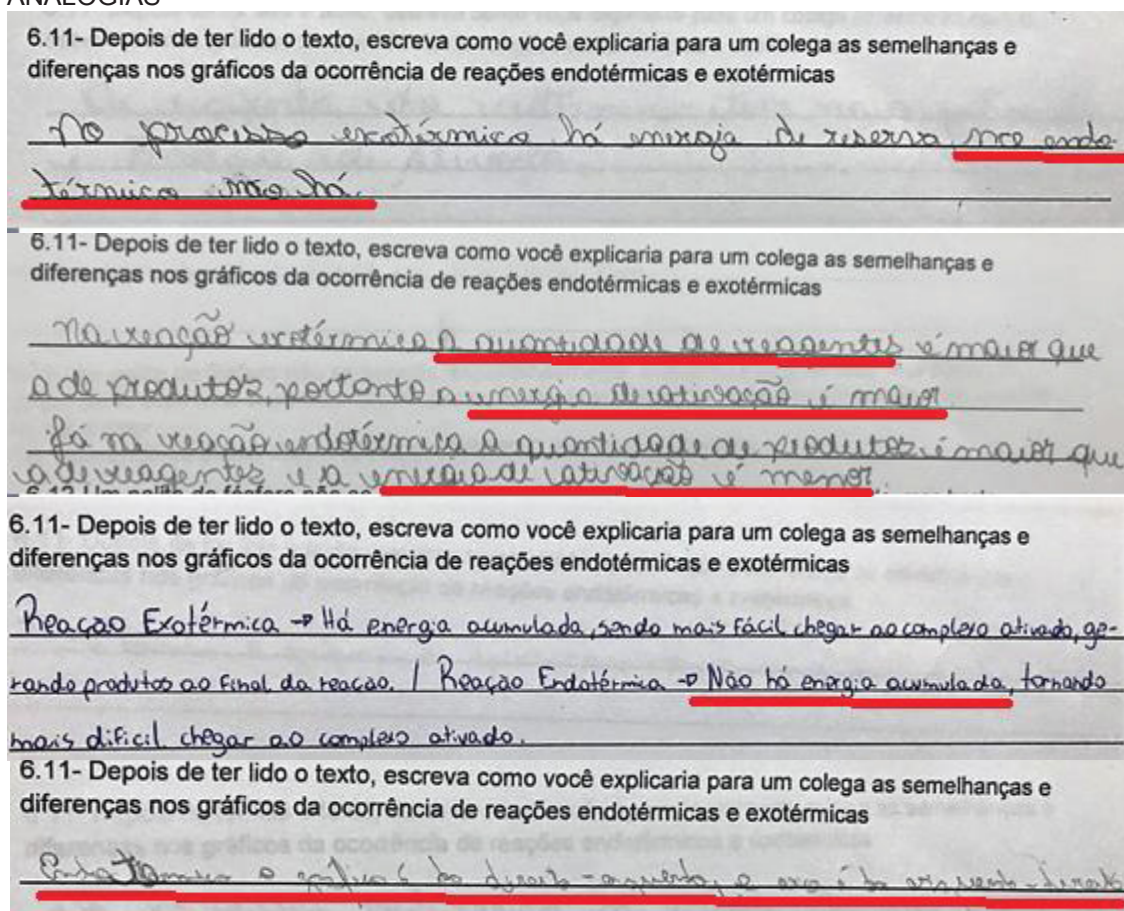 ANALOGIAS
6.11- Depois de ter lido o texto, escreva como você explicaria para um colega as semelhanças e
diferenças nos gráficos da ocorrência de reações endotérmicas e exotérmicas
No processo exotérmico há energia de reserva, no endo-
térmico não há.
6.11- Depois de ter lido o texto, escreva como você explicaria para um colega as semelhanças e
diferenças nos gráficos da ocorrência de reações endotérmicas e exotérmicas
Na reação exotérmica a quantidade de reagentes é maior que
a de produtos, portanto a energia de ativação é maior
Já na reação endotérmica a quantidade de produtos é maior que
a de reagentes e a energia de ativação é menor
6.11- Depois de ter lido o texto, escreva como você explicaria para um colega as semelhanças e
diferenças nos gráficos da ocorrência de reações endotérmicas e exotérmicas
Reação Exotérmica → Há energia acumulada, sendo mais fácil chegar ao complexo ativado, ge-
rando produtos ao final da reação. / Reação Endotérmica → Não há energia acumulada, tornando
mais difícil chegar ao complexo ativado.
6.11- Depois de ter lido o texto, escreva como você explicaria para um colega as semelhanças e
diferenças nos gráficos da ocorrência de reações endotérmicas e exotérmicas
o gráfico é da direita-esquerda, e exo é da esquerda-direita